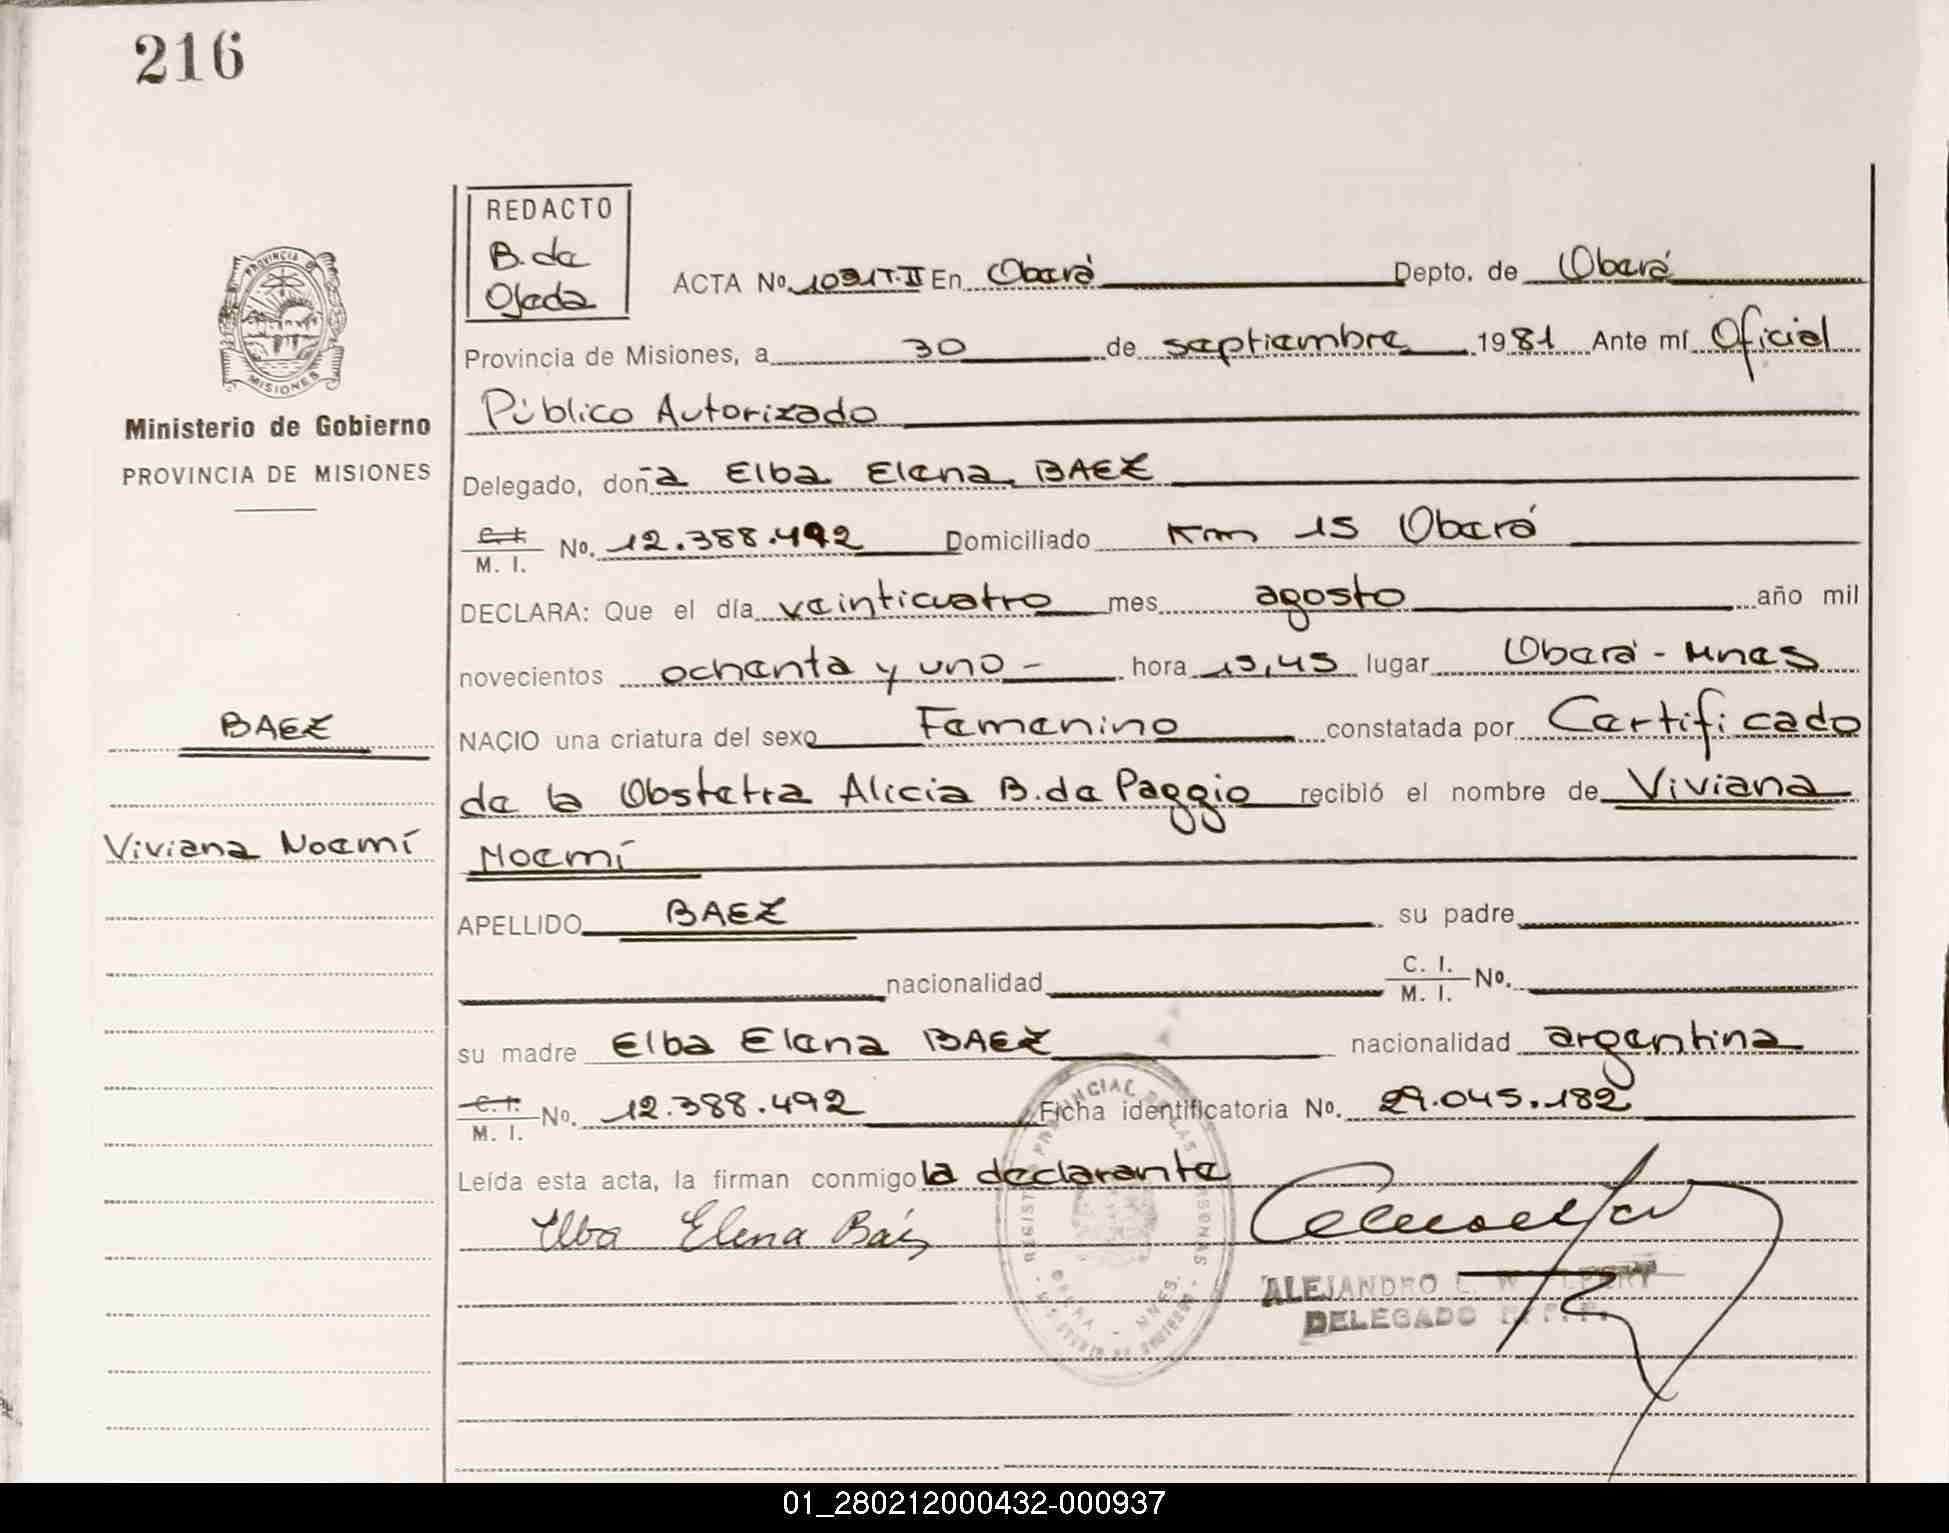 216
REDACTO
B. de
Ojeda
ACTA No. 1091T.II En Oberá Depto. de Oberá
Provincia de Misiones, a 30 de septiembre 1981 Ante mí Oficial
Público Autorizado
Ministerio de Gobierno
PROVINCIA DE MISIONES
Delegado, doña Elba Elena BAEZ
C. I.
M. I. No. 12.388.492 Domiciliado Km 15 Oberá
DECLARA: Que el día veinticuatro mes agosto año mil
novecientos ochenta y uno - hora 15,45 lugar Oberá - Mnes
BAEZ
NACIO una criatura del sexo Femenino constatada por Certificado
de la Obstetra Alicia B. de Paggio recibió el nombre de Viviana
Viviana Noemí
Noemí
APELLIDO BAEZ su padre
nacionalidad C. I.
M. I. No.
su madre Elba Elena BAEZ nacionalidad argentina
C. I.
M. I. No. 12.388.492 Ficha identificatoria No. 29.045.182
Leída esta acta, la firman conmigo la declarante
Elba Elena Baéz
ALEJANDRO L.
DELEGADO
PROVINCIA DE
MISIONES
REGISTRO PROVINCIAL DE LAS PERSONAS
OBERA - MNES.
MINISTERIO DE GOBIERNO
01_280212000432-000937